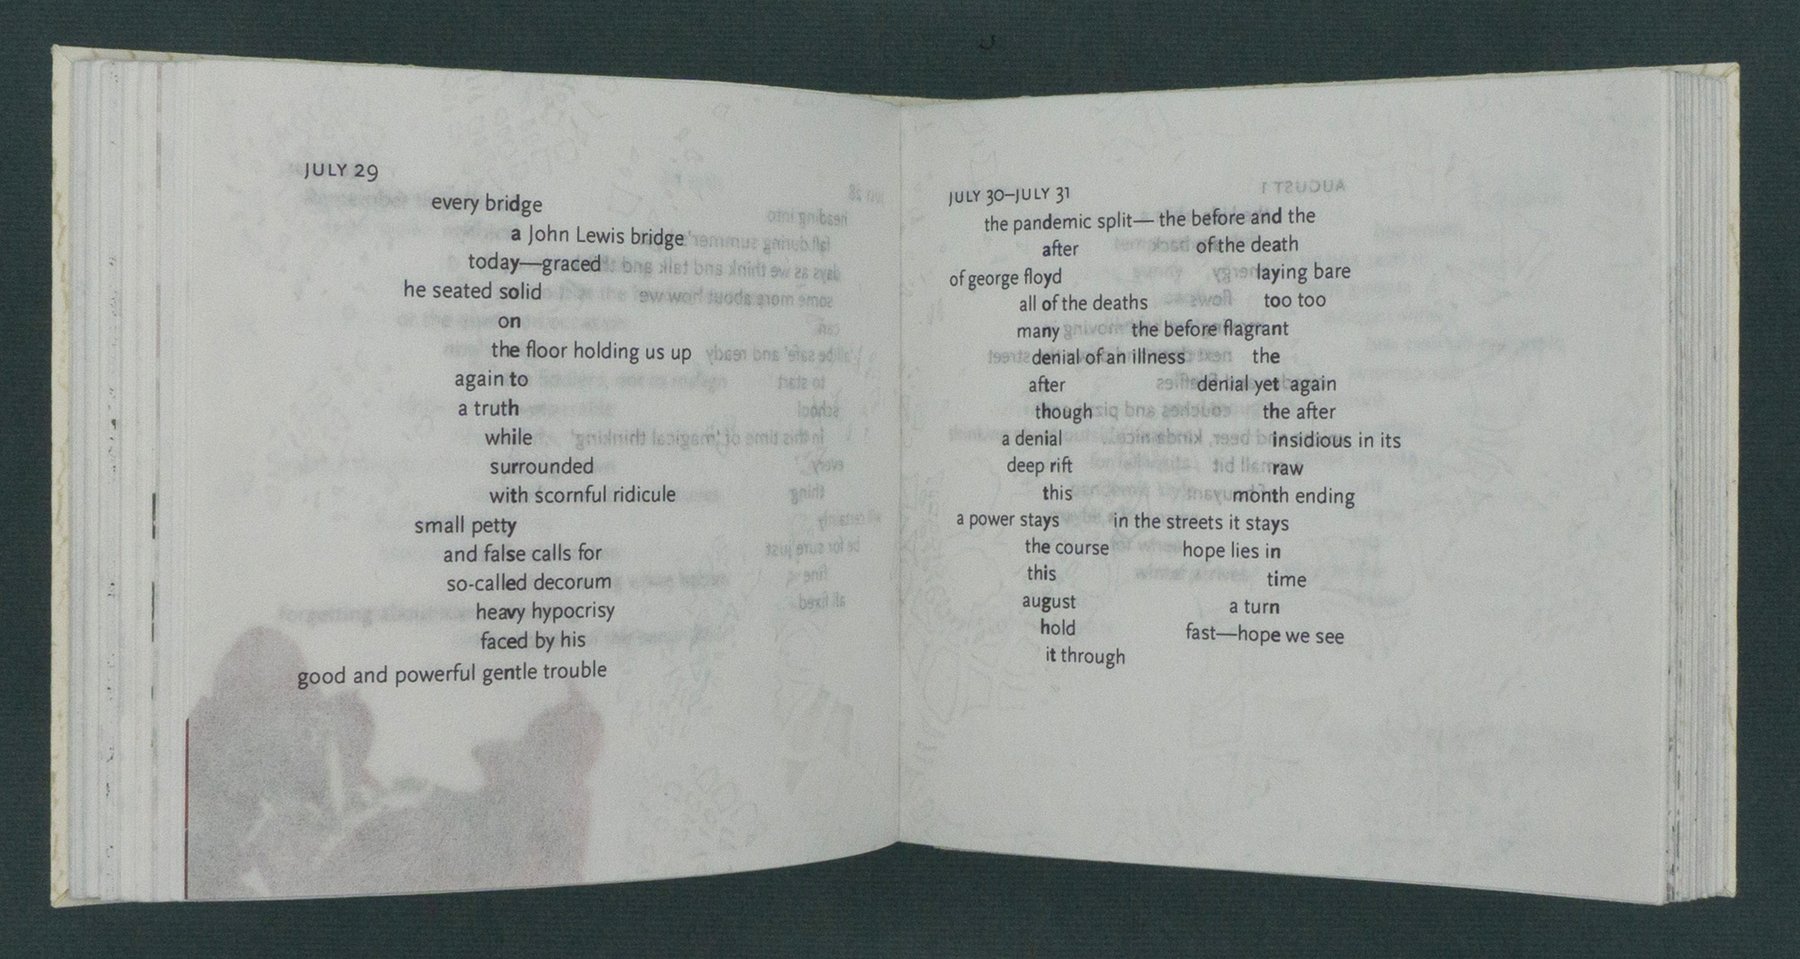 JULY 29
every bridge
a John Lewis bridge
today—graced
he seated solid
on
the floor holding us up
again to
a truth
while
surrounded
with scornful ridicule
small petty
and false calls for
so-called decorum
heavy hypocrisy
faced by his
good and powerful gentle trouble
JULY 30–JULY 31
the pandemic split— the before and the
after of the death
of george floyd laying bare
all of the deaths too too
many the before flagrant
denial of an illness the
after denial yet again
though the after
a denial insidious in its
deep rift raw
this month ending
a power stays in the streets it stays
the course hope lies in
this time
august a turn
hold fast—hope we see
it through